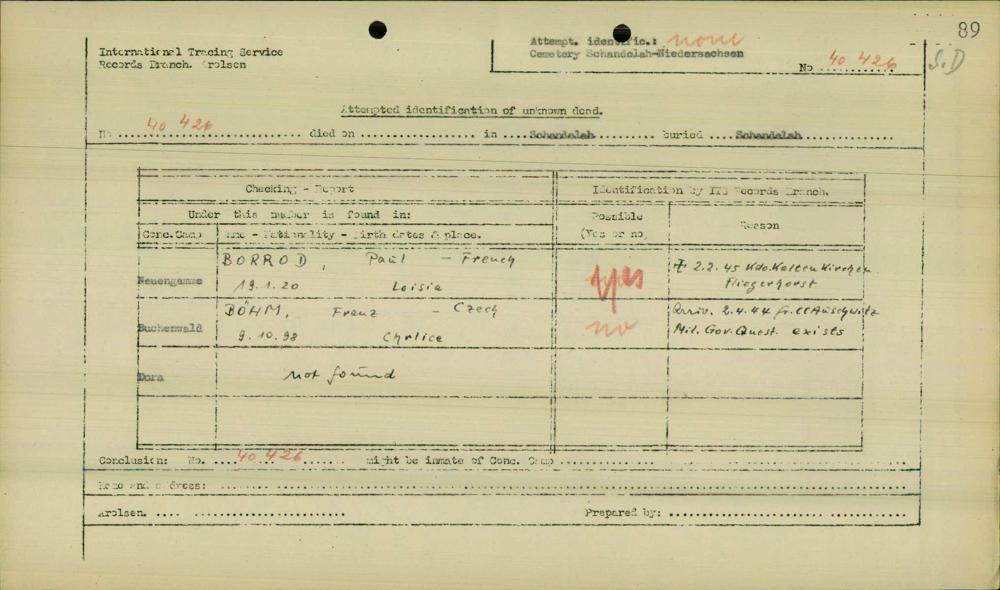 89
International Tracing Service
Records Branch. Arolsen
Attempt. identific.: none
Cemetery Schandelah-Niedersachsen
No 40 426
S.D
Attempted identification of unknown dead.
No 40 426 died on in Schandelah buried Schandelah
Checking - Report
Identification by ITS Records Branch.
Under this number is found in:
Possible
(Yes or no)
Reason
Conc.Camp
Name - Nationality - Birth dates & place.
BORROD, Paul - French
Neuengamme
19.1.20 Loisia
yes
2.2.45 Kdo.Kaltenkirchen
Fliegerhorst
BÖHM, Franz - Czech
Buchenwald
9.10.98 Chrlice
no
Arriv. 2.4.44 fr. CC Auschwitz
Mil.Gov.Quest. exists
Dora
not found
Conclusion: No. 40 426 might be inmate of Conc. Camp
Name and address:
Arolsen.
Prepared by: